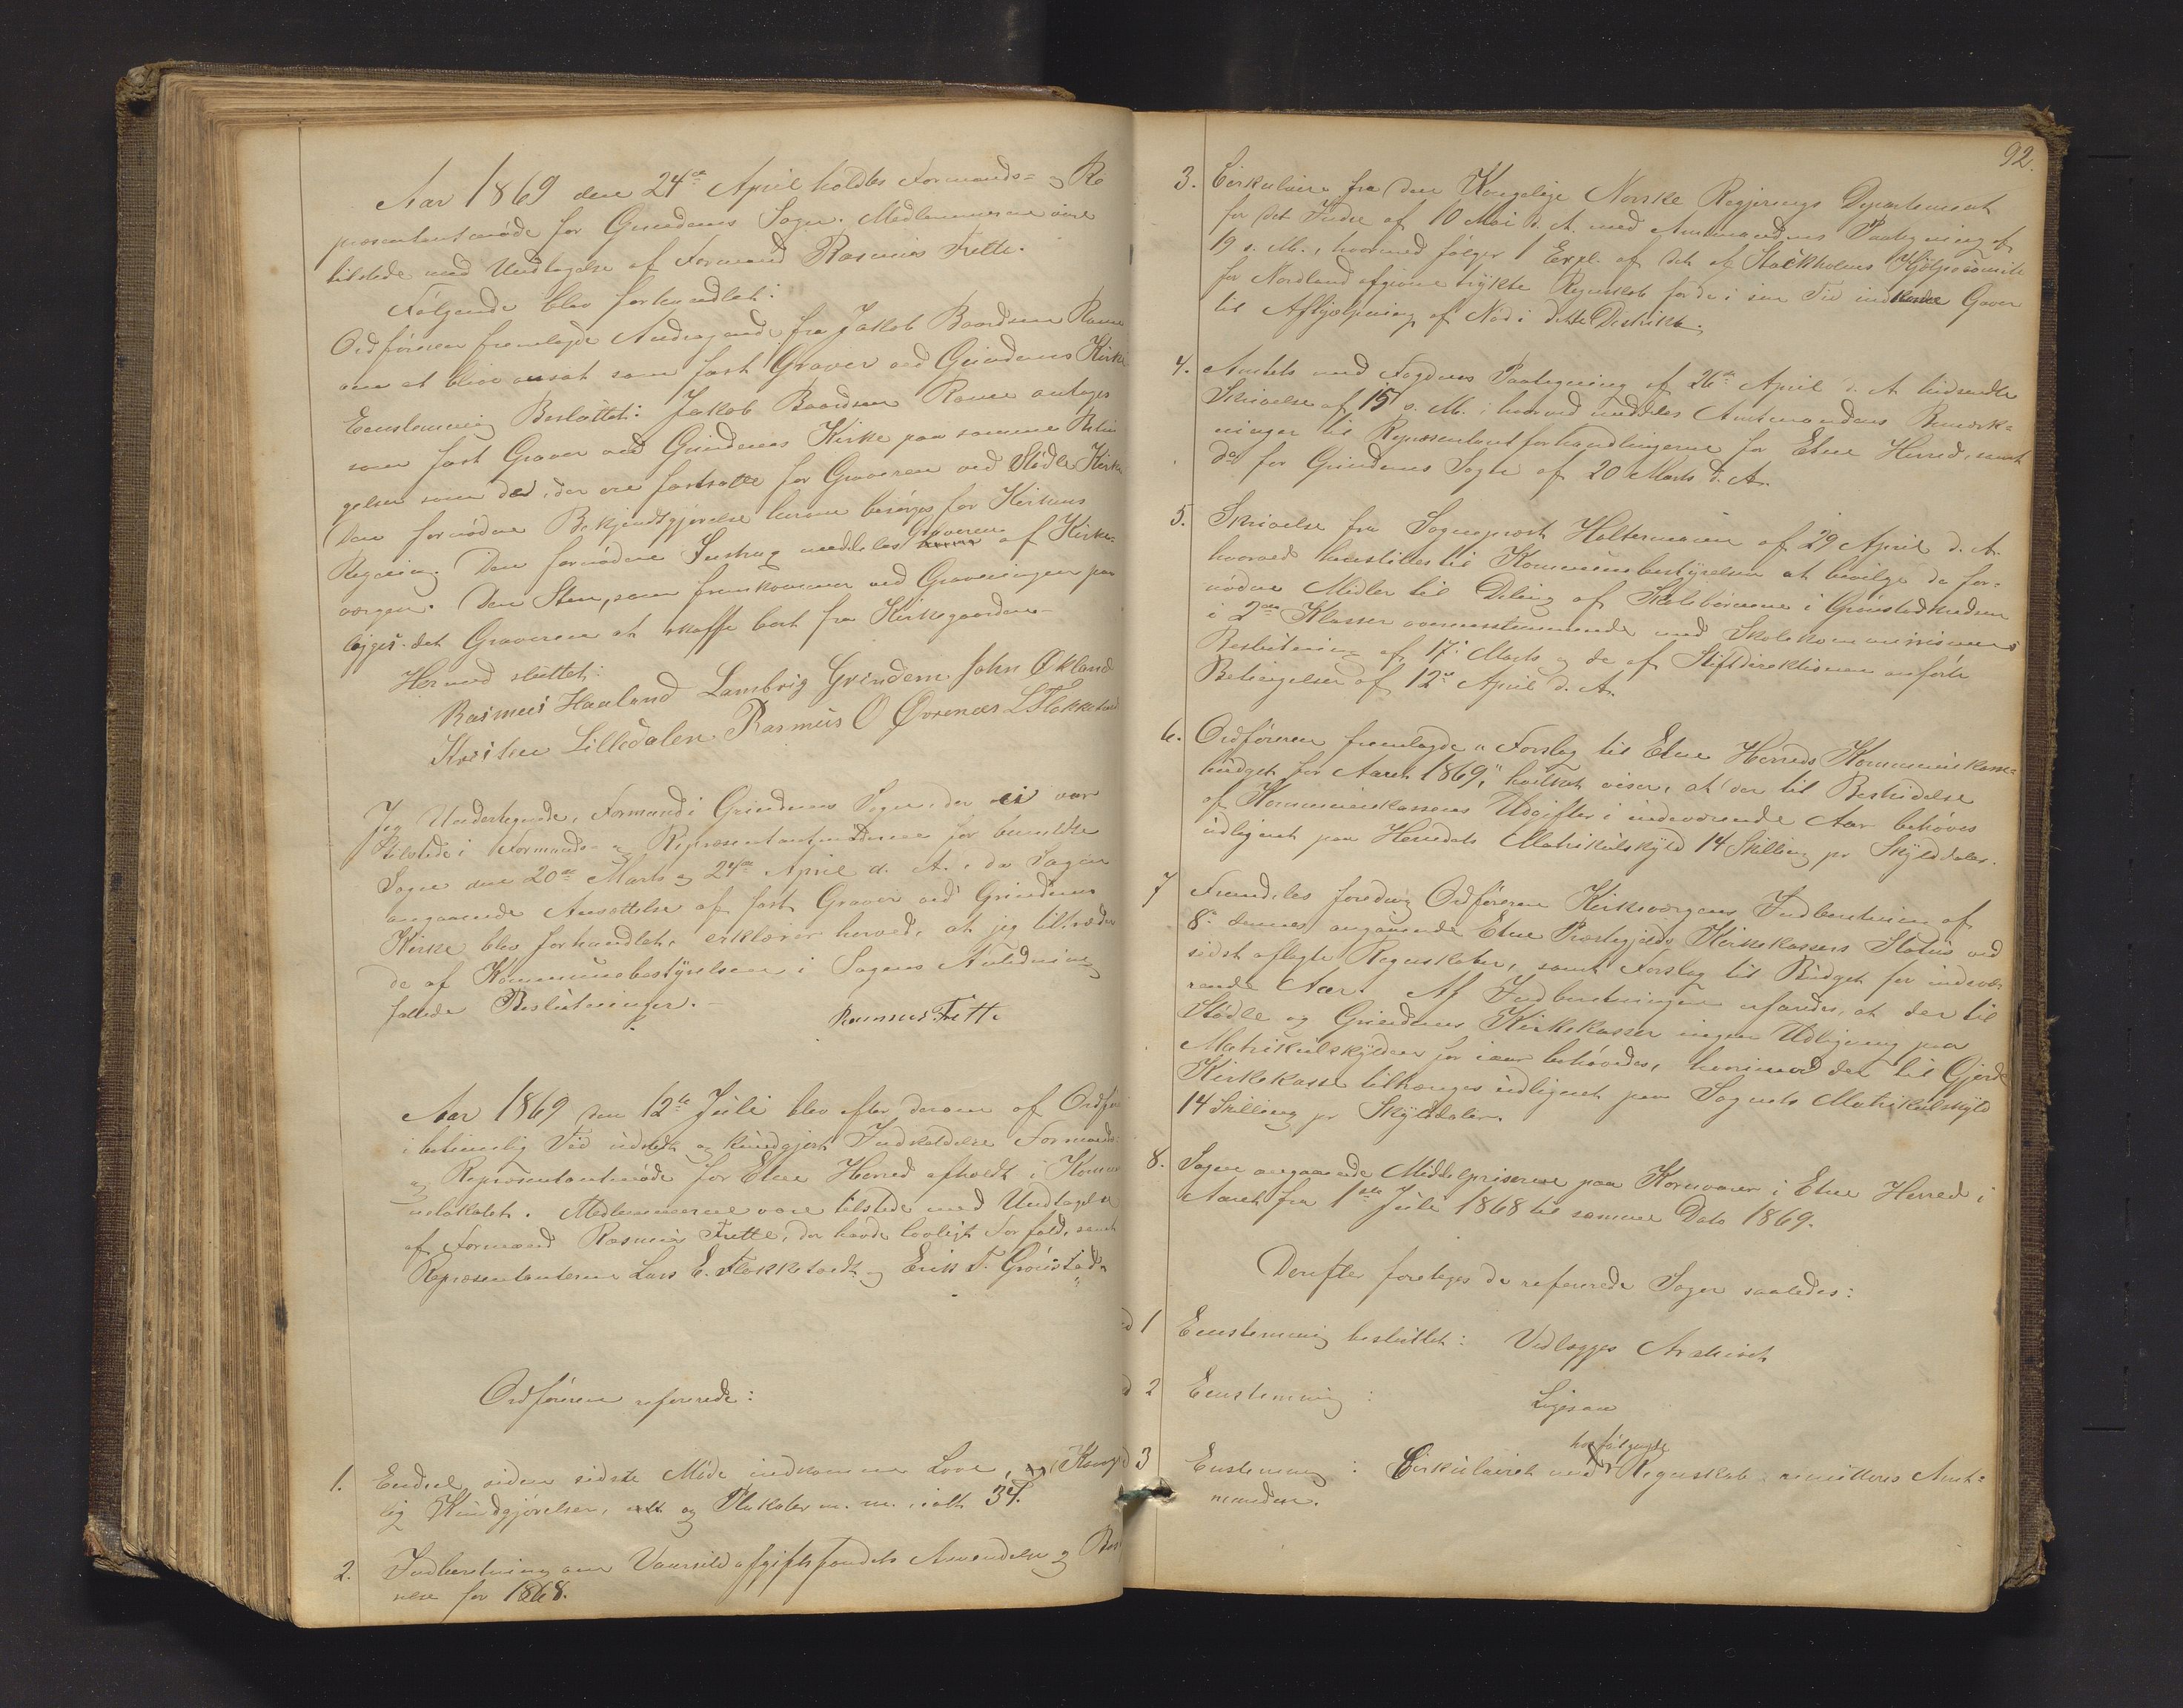 Aar 1869 den 24de April holdtes Formands- og Re
præsentantmøde for Grindems Sogn. Medlemmerne vare
tilstede med Undtagelse af Formand Rasmus Frette.
Følgende blev forhandlet:
Ordføreren fremlagde Andragende fra Jakob Baardsen Rame
om at blive ansat som fast Graver ved Grindems Kirke
Eenstemmig Besluttet: Jakob Baardsen Rame antages
som fast Graver ved Grindems Kirke paa samme Betin
gelser som de, der ere fastsatte for Graveren ved Stødle Kirke
Den fornødne Bekjendtgjørelse herom besørges for Kirkens
Regning. Den fornødne Instrux meddeles Graveren af Kirke-
værgen. Den Sten, som fremkommer ved Gravningen paa
lægges det Graveren at skaffe bort fra Kirkegaarden
Hermed sluttet:
Rasmus Haaland Lambrig Grindem John Økland
Kristen Lilledalen Rasmus O Øvrenæs L Flokketvedt
Jeg Undertegnede, Formand i Grindems Sogn, der ei var
tilstede i Formands- og Repræsentantmøderne for bemeldte
Sogn den 20de Marts og 24de April d. A. da Sagen
angaaende Ansættelse af fast Graver ved Grindems
Kirke blev forhandlet, erklærer herved, at jeg tiltræder
de af Kommunebestyrelsen i Sagens Anledning
fattede Beslutninger.
Rasmus Frette
Aar 1869 den 12te Juli blev efter derom af Ordfø
i betimelig Tid udstedt og kundgjort Indkaldelse Formands-
og Repræsentantmøde for Etne Herred afholdt i Kommu
nelokalet. Medlemmerne vare tilstede med Undtagelse
af Formand Rasmus Frette, der havde lovligt Forfald, samt
Repræsentanterne Lars E. Flokketvedt og Erik T. Grønstad
Ordføreren refererede:
1. Endeel siden sidste Møde indkomne Love, Konge
lig Kundgjørelser, og Plakater m. m. ialt 34.
2. Indberetning om Vaarsildafgiftsfondets Anvendelse og Best
nelse for 1868.
92.
3. Cirkulaire fra den Kongelige Norske Regjerings Departement
for det Indre af 10 Mai d. A. med Amtmandens Paategning af
19 s. M., hvormed følger 1 Expl. af det af Stockholms Hjælpecomite
for Nordland afgivne trykte Regnskab for de i sin Tid indkomne Gaver
til Afhjælpning af Nød i dette Distrikt.
4. Amtets med Fogdens Paategning af 26de April d. A. hidsendte
Skrivelse af 15 s. M.; hvorved meddeles Amtmandens Bemærk-
ninger til Repræsentantforhandlingerne for Etne Herred, samt
do for Grindems Sogn af 20 Marts d. A.
5. Skrivelse fra Sogneprest Haltermann af 29 April d. A.
hvorved henstilles til Kommunebestyrelsen at bevilge de for-
nødne Midler til Deling af Skolebørnene i Grønstadkredsen
i 2de Klasser overensstemmende med Skolekommissionens
Beslutning af 17de Marts og de af Stiftdirektionen anførte
Betingelser af 12te April d. A.
6. Ordføreren fremlagde "Forslag til Etne Herreds Kommunekasse-
budget for Aaret 1869", hvilket viser, at der til Bestridelse
af Kommunekassens Udgifter i indeværende Aar behøves
udlignet paa Herredets Matrikulskyld 14 Skilling pr Skylddaler.
7 Fremdeles foredrog Ordføreren Kirkeværgens Indberetning af
8de dennes angaaende Etne Præstegjelds Kirkekassers Status ved
sidst aflagte Regnskaber, samt Forslag til Budget for indevæ-
rende Aar. Af Indberetningen erfaredes, at der til
Stødle og Grindems Kirkekasser ingen Udligning paa
Matrikulskylden for iaar behøvedes, hvorimod der til Gjerde
Kirkekasse tiltrænges udlignet paa Sognets Matrikulskyld
14 Skilling pr Skylddaler.
8. Sagen angaaende Middelpriserne paa Kornvarer i Etne Herred i
Aaret fra 1ste Juli 1868 til samme Dato 1869.
Derefter foretoges de refererede Sager saaledes:
ad 1 Eenstemmig besluttet: Vedlægges Arkivet
ad 2 Eenstemmig : Ligesaa
ad 3 Eenstemmig : Cirkulairet med hosfølgende Regnskab remitteres Amt-
manden.